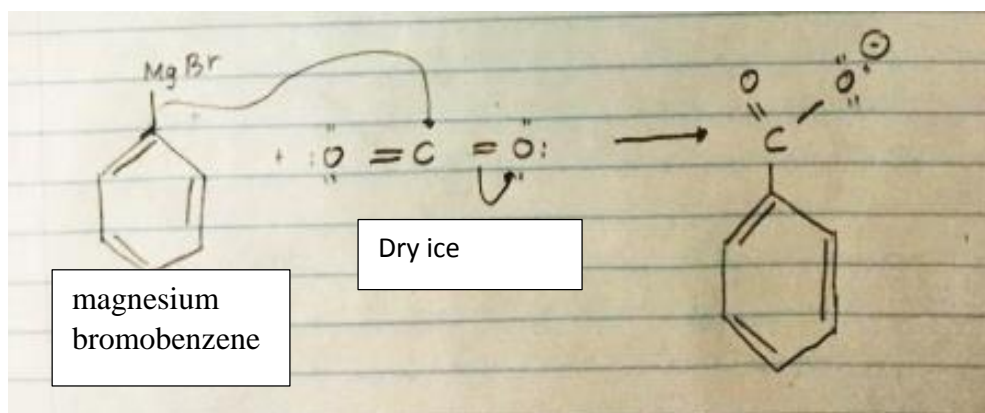 MgBr
+ :O = C = O:
O
O
C
Dry ice
magnesium
bromobenzene